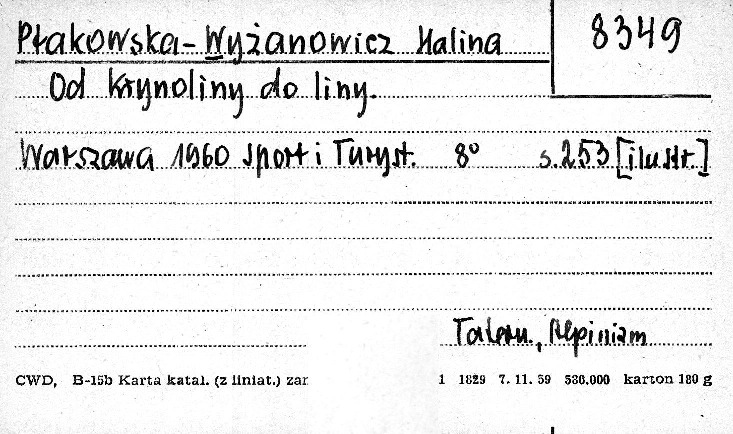 Ptakowska-Wyżanowicz Halina 8349
Od Krynoliny do liny.
Warszawa 1960 Sport i Turyst. 8° s.253 [ilustr.]
Tatern., Alpinizm
CWD, B-15b Karta katal. (z liniat.) zar 1 1829 7.11.59 530.000 karton 180 g